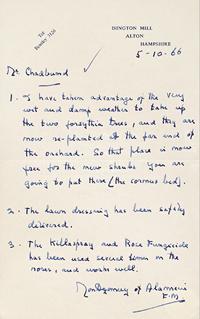 ISINGTON MILL
ALTON
HAMPSHIRE
Tel
Bentley 3126
5-10-66
Mr. Chadband
1. I have taken advantage of the very
wet and damp weather to take up
the two forsythia trees, and they are
now re-planted at the far end of
the orchard. So that place is now
free for the new shrubs you are
going to put there (the cornus bed).
2. The lawn dressing has been safely
delivered.
3. The Killaspray and Rose Fungicide
has been used several times on the
roses, and works well.
Montgomery of Alamein
F.M.